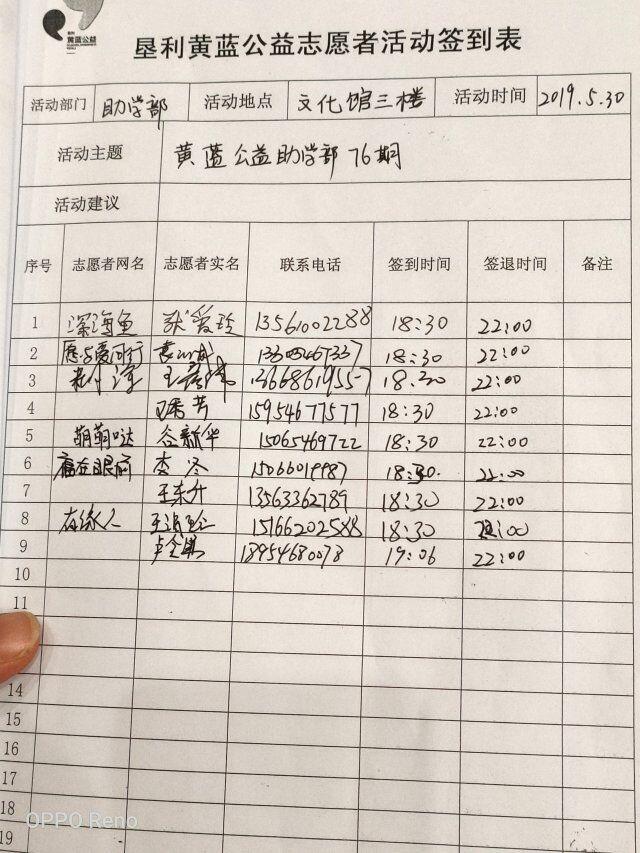 垦利
黄蓝公益
垦利黄蓝公益志愿者活动签到表
活动部门 助学部 活动地点 文化馆三楼 活动时间 2019.5.30
活动主题 黄蓝公益助学部76期
活动建议
序号 志愿者网名 志愿者实名 联系电话 签到时间 签退时间 备注
1 深海鱼 耿爱玲 13561002288 18:30 22:00
2 愿与爱同行 18:30 22:00
3 13668619557 18:30 22:00
4 15954677577 18:30 22:00
5 萌萌哒 谷新华 15065469722 18:30 22:00
6 福在眼前 李冬 15066019987 18:30 22:00
7 王东升 13563362789 18:30 22:00
8 有缘人 15166202588 18:30 22:00
9 18954680078 19:06 22:00
10
11
14
15
16
17
18
19
OPPO Reno